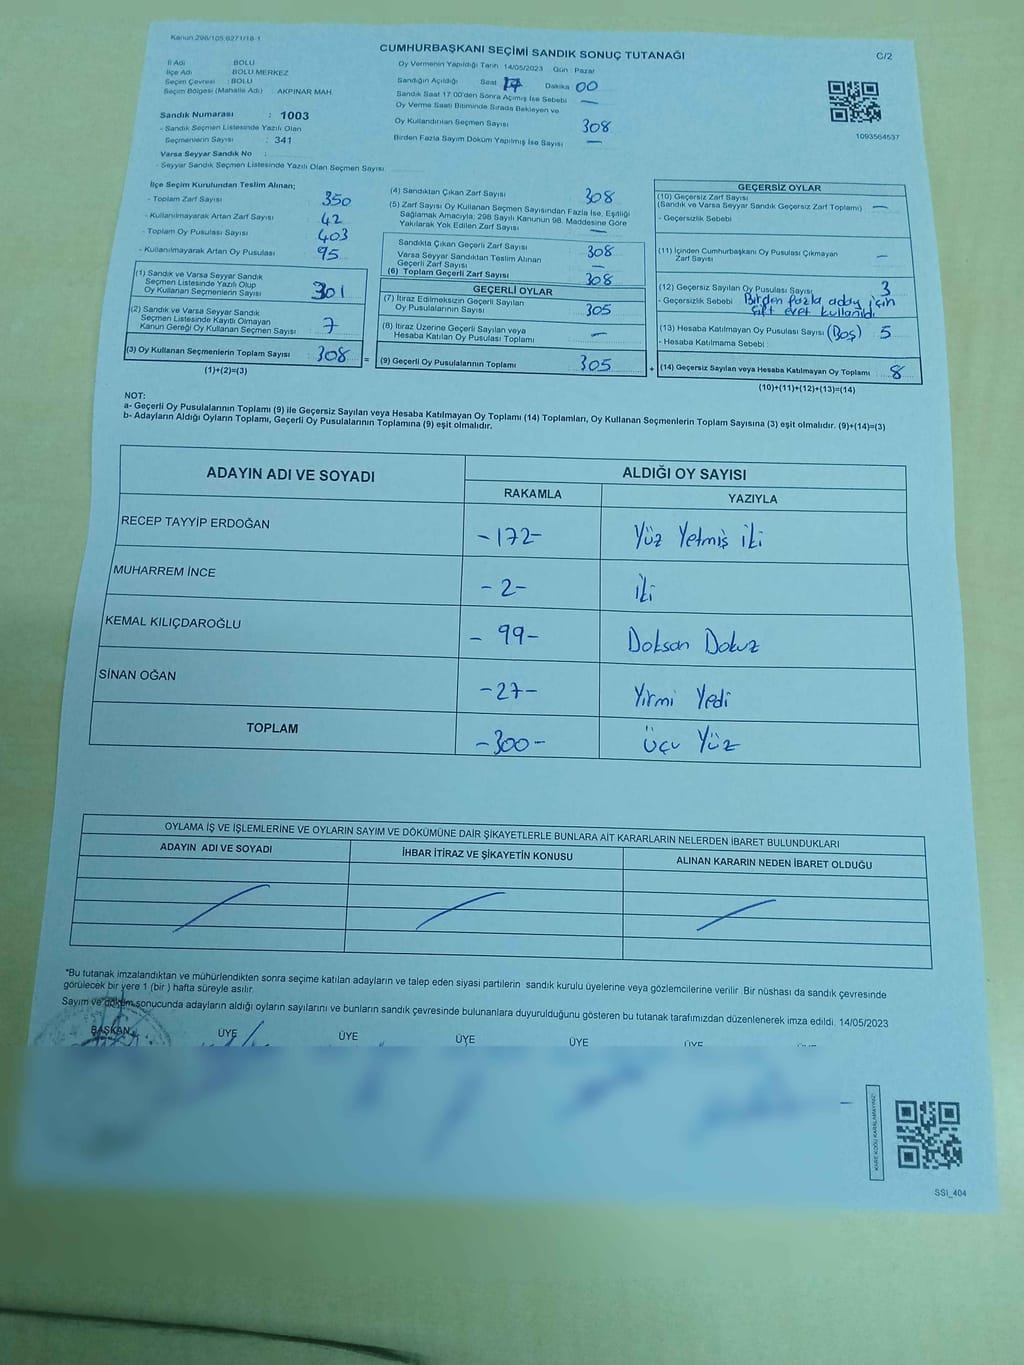 Kanun 298/105 6271/18-1
CUMHURBAŞKANI SEÇİMİ SANDIK SONUÇ TUTANAĞI
C/2
İl Adı : BOLU
İlçe Adı : BOLU MERKEZ
Seçim Çevresi : BOLU
Seçim Bölgesi (Mahalle Adı) : AKPINAR MAH.
Sandık Numarası : 1003
- Sandık Seçmen Listesinde Yazılı Olan
Seçmenlerin Sayısı : 341
Varsa Seyyar Sandık No :
- Seyyar Sandık Seçmen Listesinde Yazılı Olan Seçmen Sayısı
Oy Vermenin Yapıldığı Tarih 14/05/2023 Gün : Pazar
Sandığın Açıldığı Saat 17 Dakika 00
Sandık Saat 17:00'den Sonra Açılmış İse Sebebi —
Oy Verme Saati Bitiminde Sırada Bekleyen ve
Oy Kullandırılan Seçmen Sayısı 308
Birden Fazla Sayım Döküm Yapılmış İse Sayısı —
1093564537
İlçe Seçim Kurulundan Teslim Alınan;
- Toplam Zarf Sayısı 350
- Kullanılmayarak Artan Zarf Sayısı 42
- Toplam Oy Pusulası Sayısı 403
- Kullanılmayarak Artan Oy Pusulası 95
(1) Sandık ve Varsa Seyyar Sandık
Seçmen Listesinde Yazılı Olup
Oy Kullanan Seçmenlerin Sayısı 301
(2) Sandık ve Varsa Seyyar Sandık
Seçmen Listesinde Kayıtlı Olmayan
Kanun Gereği Oy Kullanan Seçmen Sayısı 7
(3) Oy Kullanan Seçmenlerin Toplam Sayısı 308 =
(1)+(2)=(3)
(4) Sandıktan Çıkan Zarf Sayısı 308
(5) Zarf Sayısı Oy Kullanan Seçmen Sayısından Fazla İse, Eşitliği
Sağlamak Amacıyla; 298 Sayılı Kanunun 98. Maddesine Göre
Yakılarak Yok Edilen Zarf Sayısı —
Sandıkta Çıkan Geçerli Zarf Sayısı 308
Varsa Seyyar Sandıktan Teslim Alınan
Geçerli Zarf Sayısı —
(6) Toplam Geçerli Zarf Sayısı 308
GEÇERLİ OYLAR
(7) İtiraz Edilmeksizin Geçerli Sayılan
Oy Pusulalarının Sayısı 305
(8) İtiraz Üzerine Geçerli Sayılan veya
Hesaba Katılan Oy Pusulası Toplamı —
(9) Geçerli Oy Pusulalarının Toplamı 305 +
GEÇERSİZ OYLAR
(10) Geçersiz Zarf Sayısı
(Sandık ve Varsa Seyyar Sandık Geçersiz Zarf Toplamı) —
- Geçersizlik Sebebi
(11) İçinden Cumhurbaşkanı Oy Pusulası Çıkmayan
Zarf Sayısı —
(12) Geçersiz Sayılan Oy Pusulası Sayısı 3
- Geçersizlik Sebebi Birden fazla aday için
çift evet kullanıldı
(13) Hesaba Katılmayan Oy Pusulası Sayısı (Boş) 5
- Hesaba Katılmama Sebebi :
(14) Geçersiz Sayılan veya Hesaba Katılmayan Oy Toplamı 8
(10)+(11)+(12)+(13)=(14)
NOT:
a- Geçerli Oy Pusulalarının Toplamı (9) ile Geçersiz Sayılan veya Hesaba Katılmayan Oy Toplamı (14) Toplamları, Oy Kullanan Seçmenlerin Toplam Sayısına (3) eşit olmalıdır. (9)+(14)=(3)
b- Adayların Aldığı Oyların Toplamı, Geçerli Oy Pusulalarının Toplamına (9) eşit olmalıdır.
ADAYIN ADI VE SOYADI ALDIĞI OY SAYISI
RAKAMLA YAZIYLA
RECEP TAYYİP ERDOĞAN -172- Yüz Yetmiş iki
MUHARREM İNCE -2- iki
KEMAL KILIÇDAROĞLU -99- Doksan Dokuz
SİNAN OĞAN -27- Yirmi Yedi
TOPLAM -300- Üçu Yüz
OYLAMA İŞ VE İŞLEMLERİNE VE OYLARIN SAYIM VE DÖKÜMÜNE DAİR ŞİKAYETLERLE BUNLARA AİT KARARLARIN NELERDEN İBARET BULUNDUKLARI
ADAYIN ADI VE SOYADI İHBAR İTİRAZ VE ŞİKAYETİN KONUSU ALINAN KARARIN NEDEN İBARET OLDUĞU
*Bu tutanak imzalandıktan ve mühürlendikten sonra seçime katılan adayların ve talep eden siyasi partilerin sandık kurulu üyelerine veya gözlemcilerine verilir. Bir nüshası da sandık çevresinde
görülecek bir yere 1 (bir) hafta süreyle asılır.
Sayım ve döküm sonucunda adayların aldığı oyların sayılarını ve bunların sandık çevresinde bulunanlara duyurulduğunu gösteren bu tutanak tarafımızdan düzenlenerek imza edildi. 14/05/2023
BAŞKAN ÜYE ÜYE ÜYE ÜYE ÜYE
KARE KODU KARALAMAYINIZ!
SSI_404